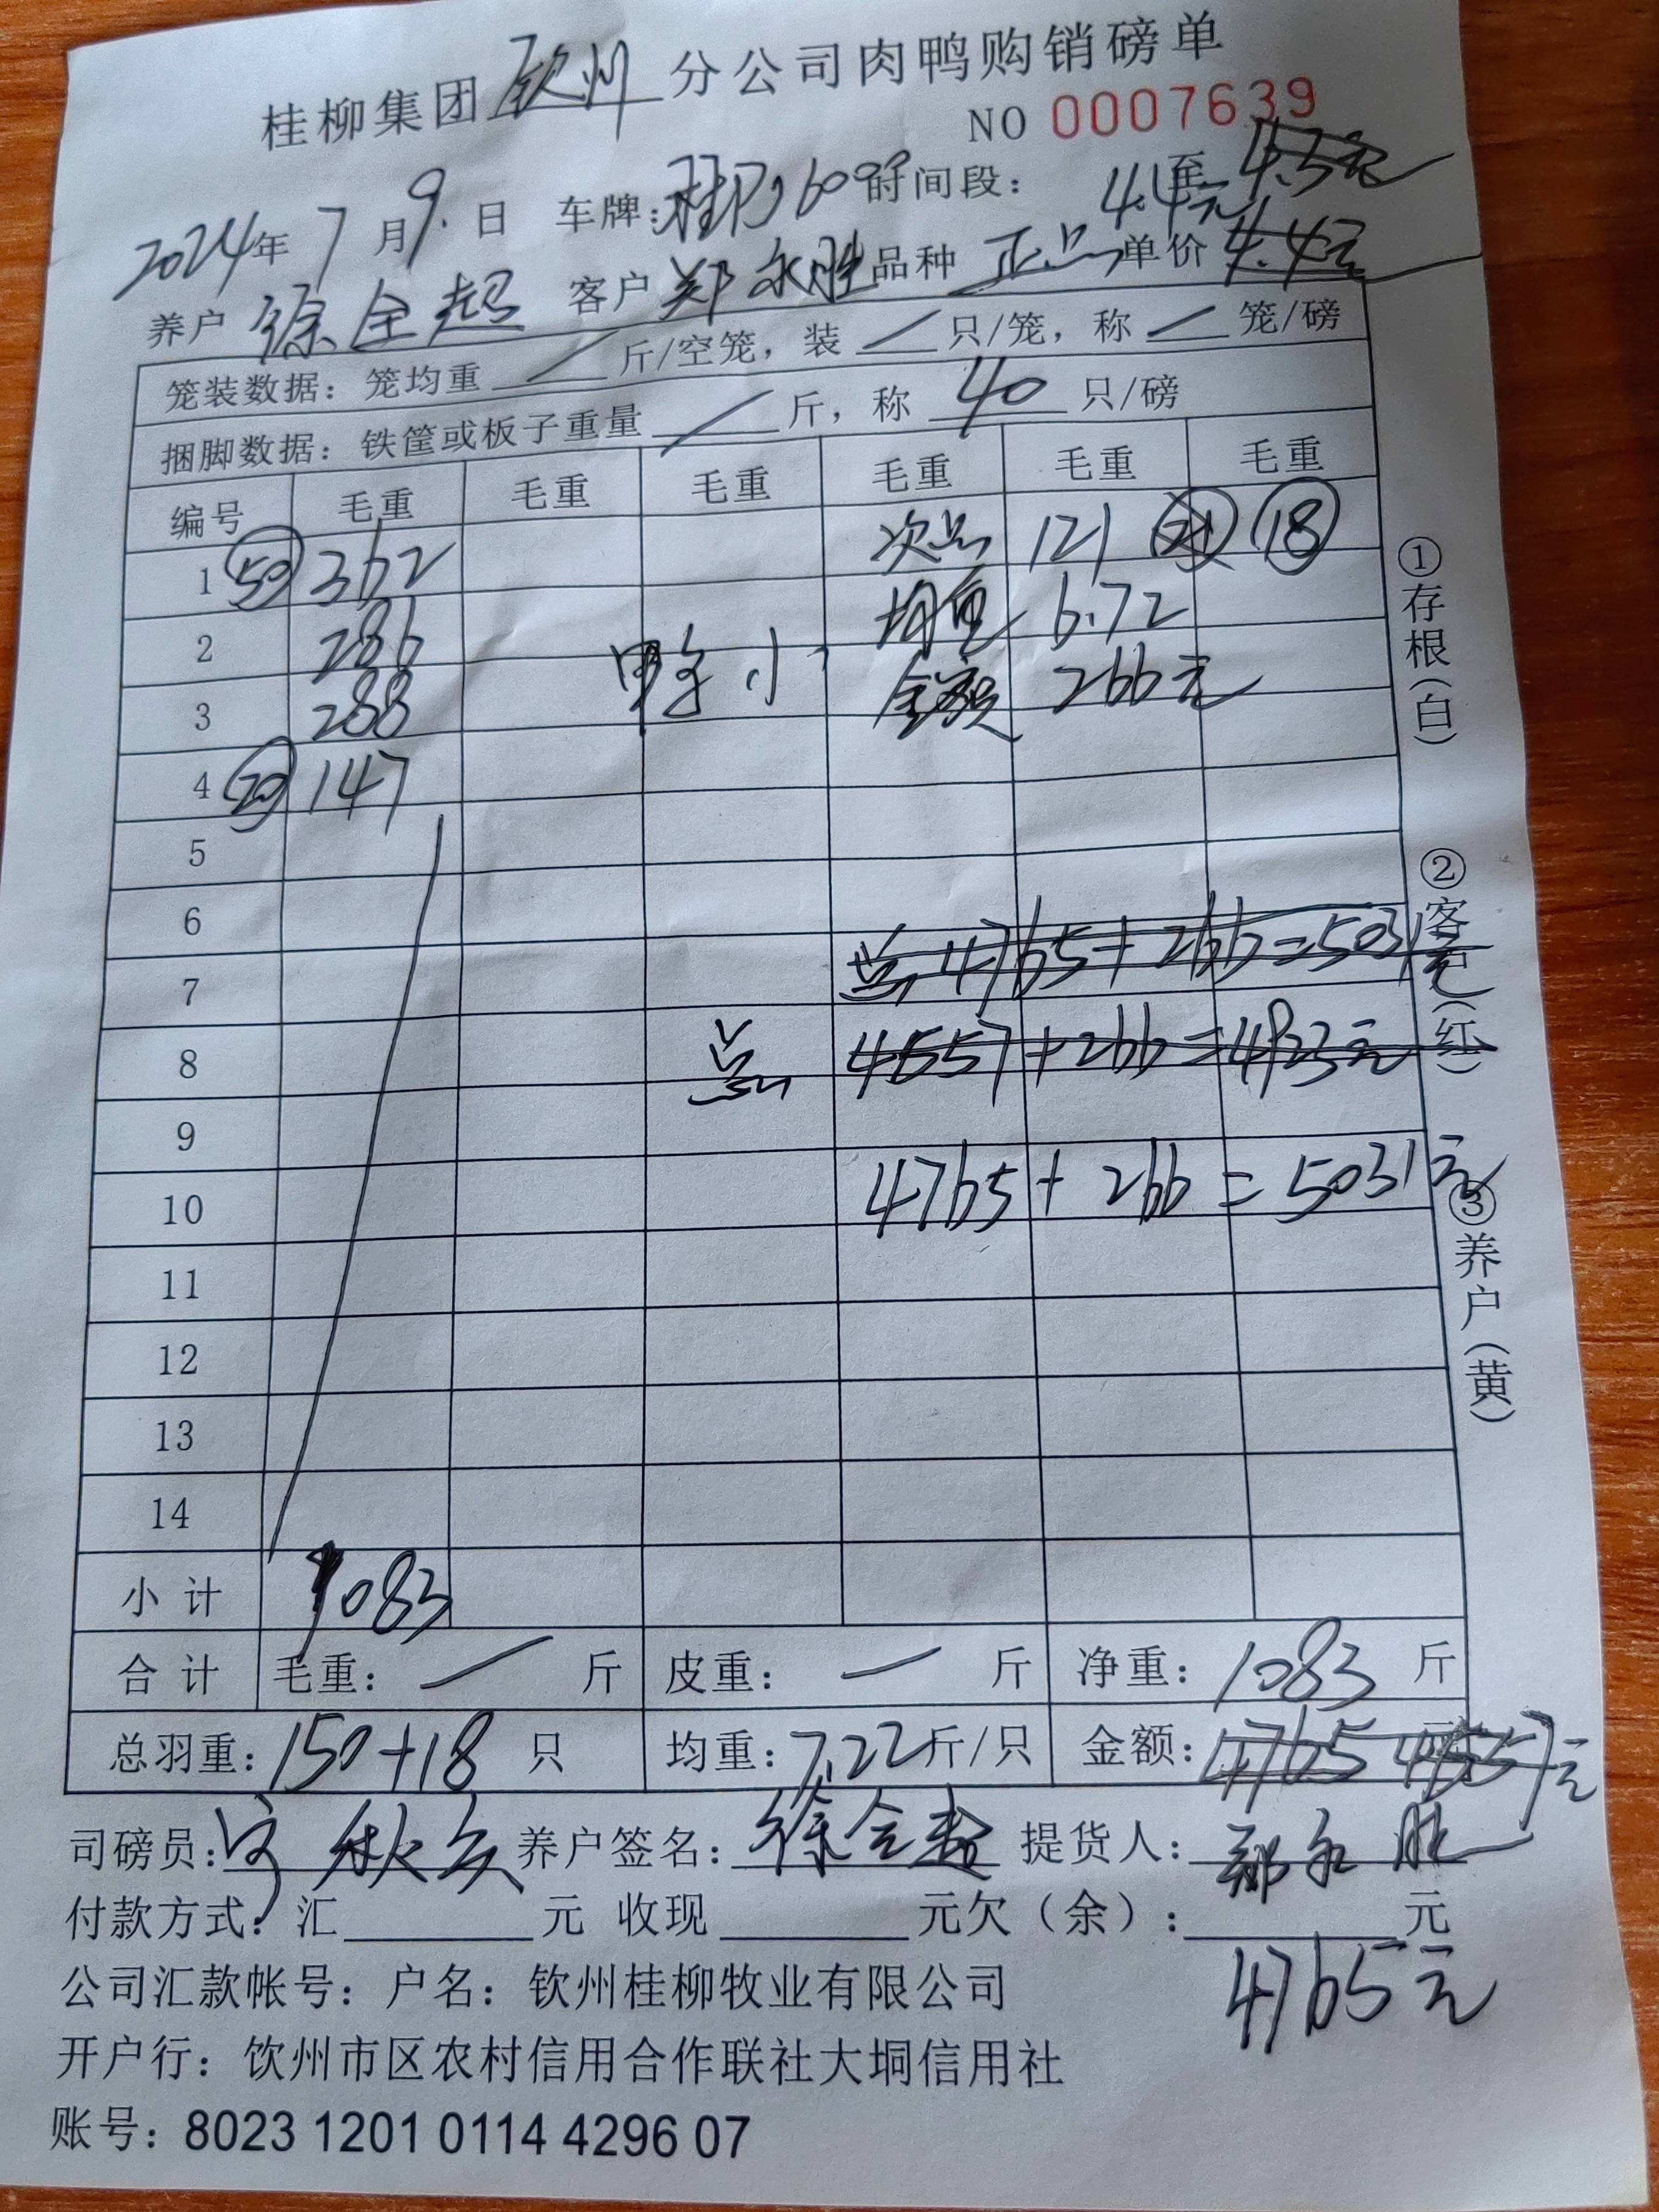 桂柳集团 钦州 分公司肉鸭购销磅单
NO 0007639
2024年 7月 9日 车牌: 时间段: 至 4.3元
4.4元
养户 徐全超 客户 郑永胜 品种 正品 单价 4.4元
笼装数据: 笼均重 / 斤/空笼, 装 / 只/笼, 称 / 笼/磅
捆脚数据: 铁筐或板子重量 / 斤, 称 40 只/磅
编号 毛重 毛重 毛重 毛重 毛重 毛重
1 50 362 次品 121 21 18
2 286 均重 6.72
3 288 鸭子小 金额 266元
4 20 147
5
6
7 总 4765+266=5031元
8 总 4557+266=4823元
9
10 4765+266=5031元
11
12
13
14
小计 1083
合计 毛重: — 斤 皮重: — 斤 净重: 1083 斤
总羽重: 150+18 只 均重: 7.22 斤/只 金额: 4765 4557元
司磅员: 养户签名: 徐全超 提货人: 郑永胜
付款方式: 汇 元 收现 元欠(余): 元
4765元
公司汇款帐号: 户名: 钦州桂柳牧业有限公司
开户行: 钦州市区农村信用合作联社大垌信用社
账号: 8023 1201 0114 4296 07
①存根(白)
②客户(红)
③养户(黄)